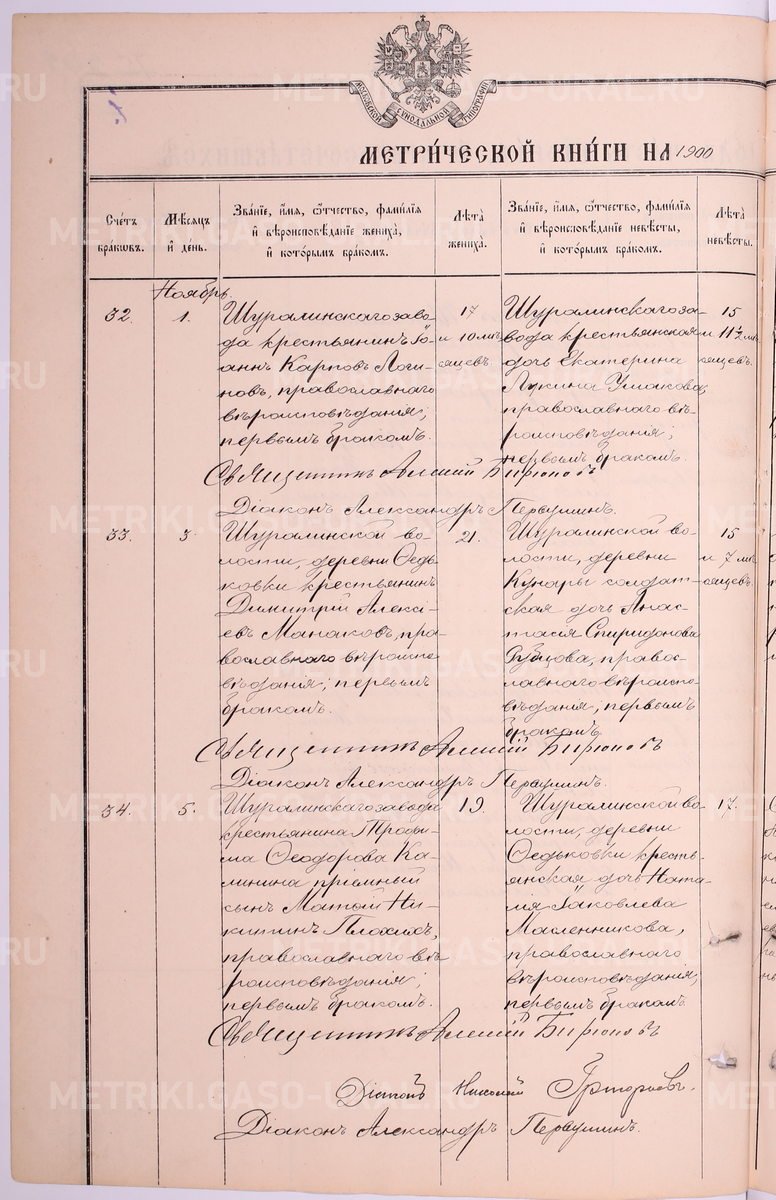 МОСКОВСКОЙ СѴНОДАЛЬНОЙ ТИПОГРАФІИ
МЕТРИ́ЧЕСКОЙ КНИ́ГИ НА 1900
Сче́тъ бра́кѡвъ.
Мѣ́сѧцъ и҆ де́нь.
Зва́нїе, и҆́мѧ, ѻ҆́тчество, фами́лїѧ и҆ вѣроисповѣ́данїе жениха̀, и҆ кото́рымъ бра́комъ.
Лѣ́та жениха̀.
Зва́нїе, и҆́мѧ, ѻ҆́тчество, фами́лїѧ и҆ вѣроисповѣ́данїе невѣ́сты, и҆ кото́рымъ бра́комъ.
Лѣ́та невѣ́сты.
Ноябрь.
32.
1.
Шуралинскаго заво-
да крестьянинъ Іо-
аннъ Карповъ Логи-
новъ, православнаго
вѣроисповѣданія;
первымъ бракомъ.
17
и 10 мѣ-
сяцевъ.
Шуралинскаго за-
вода крестьянская
дочь Екатерина
Лукина Ушакова,
православнаго вѣ-
роисповѣданія;
первымъ бракомъ.
15
и 11½ мѣ-
сяцевъ.
Священникъ Алексій Бирюковъ
Діаконъ Александръ Первушинъ.
33.
3.
Шуралинской во-
лости, деревни Ѳедь-
ковки крестьянинъ
Димитрій Алексі-
евъ Манаковъ, пра-
вославнаго вѣроиспо-
вѣданія; первымъ
бракомъ.
21.
Шуралинской во-
лости, деревни
Кунары солдат-
ская дочь Анас-
тасія Спиридонова
Рубцова, право-
славнаго вѣроиспо-
вѣданія; первымъ
бракомъ.
15
и 7 мѣ-
сяцевъ.
Священникъ Алексій Бирюковъ
Діаконъ Александръ Первушинъ.
34.
5.
Шуралинскаго завода
крестьянина Трофи-
ма Ѳеодорова Ка-
линина пріемный
сынъ Матѳій Ни-
китинъ Плохихъ,
православнаго вѣ-
роисповѣданія;
первымъ бракомъ.
19.
Шуралинской во-
лости, деревни
Ѳедьковки кресть-
янская дочь Ната-
лія Іаковлева
Масленникова,
православнаго
вѣроисповѣданія;
первымъ бракомъ.
17.
Священникъ Алексій Бирюковъ
Николай Григорьевъ.
Діаконъ Александръ Первушинъ.
METRIKI.GASO-URAL.RU